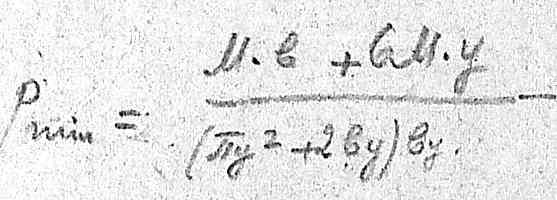 P min = (M·b + 6M·y) / ((πy² + 2by)by.)